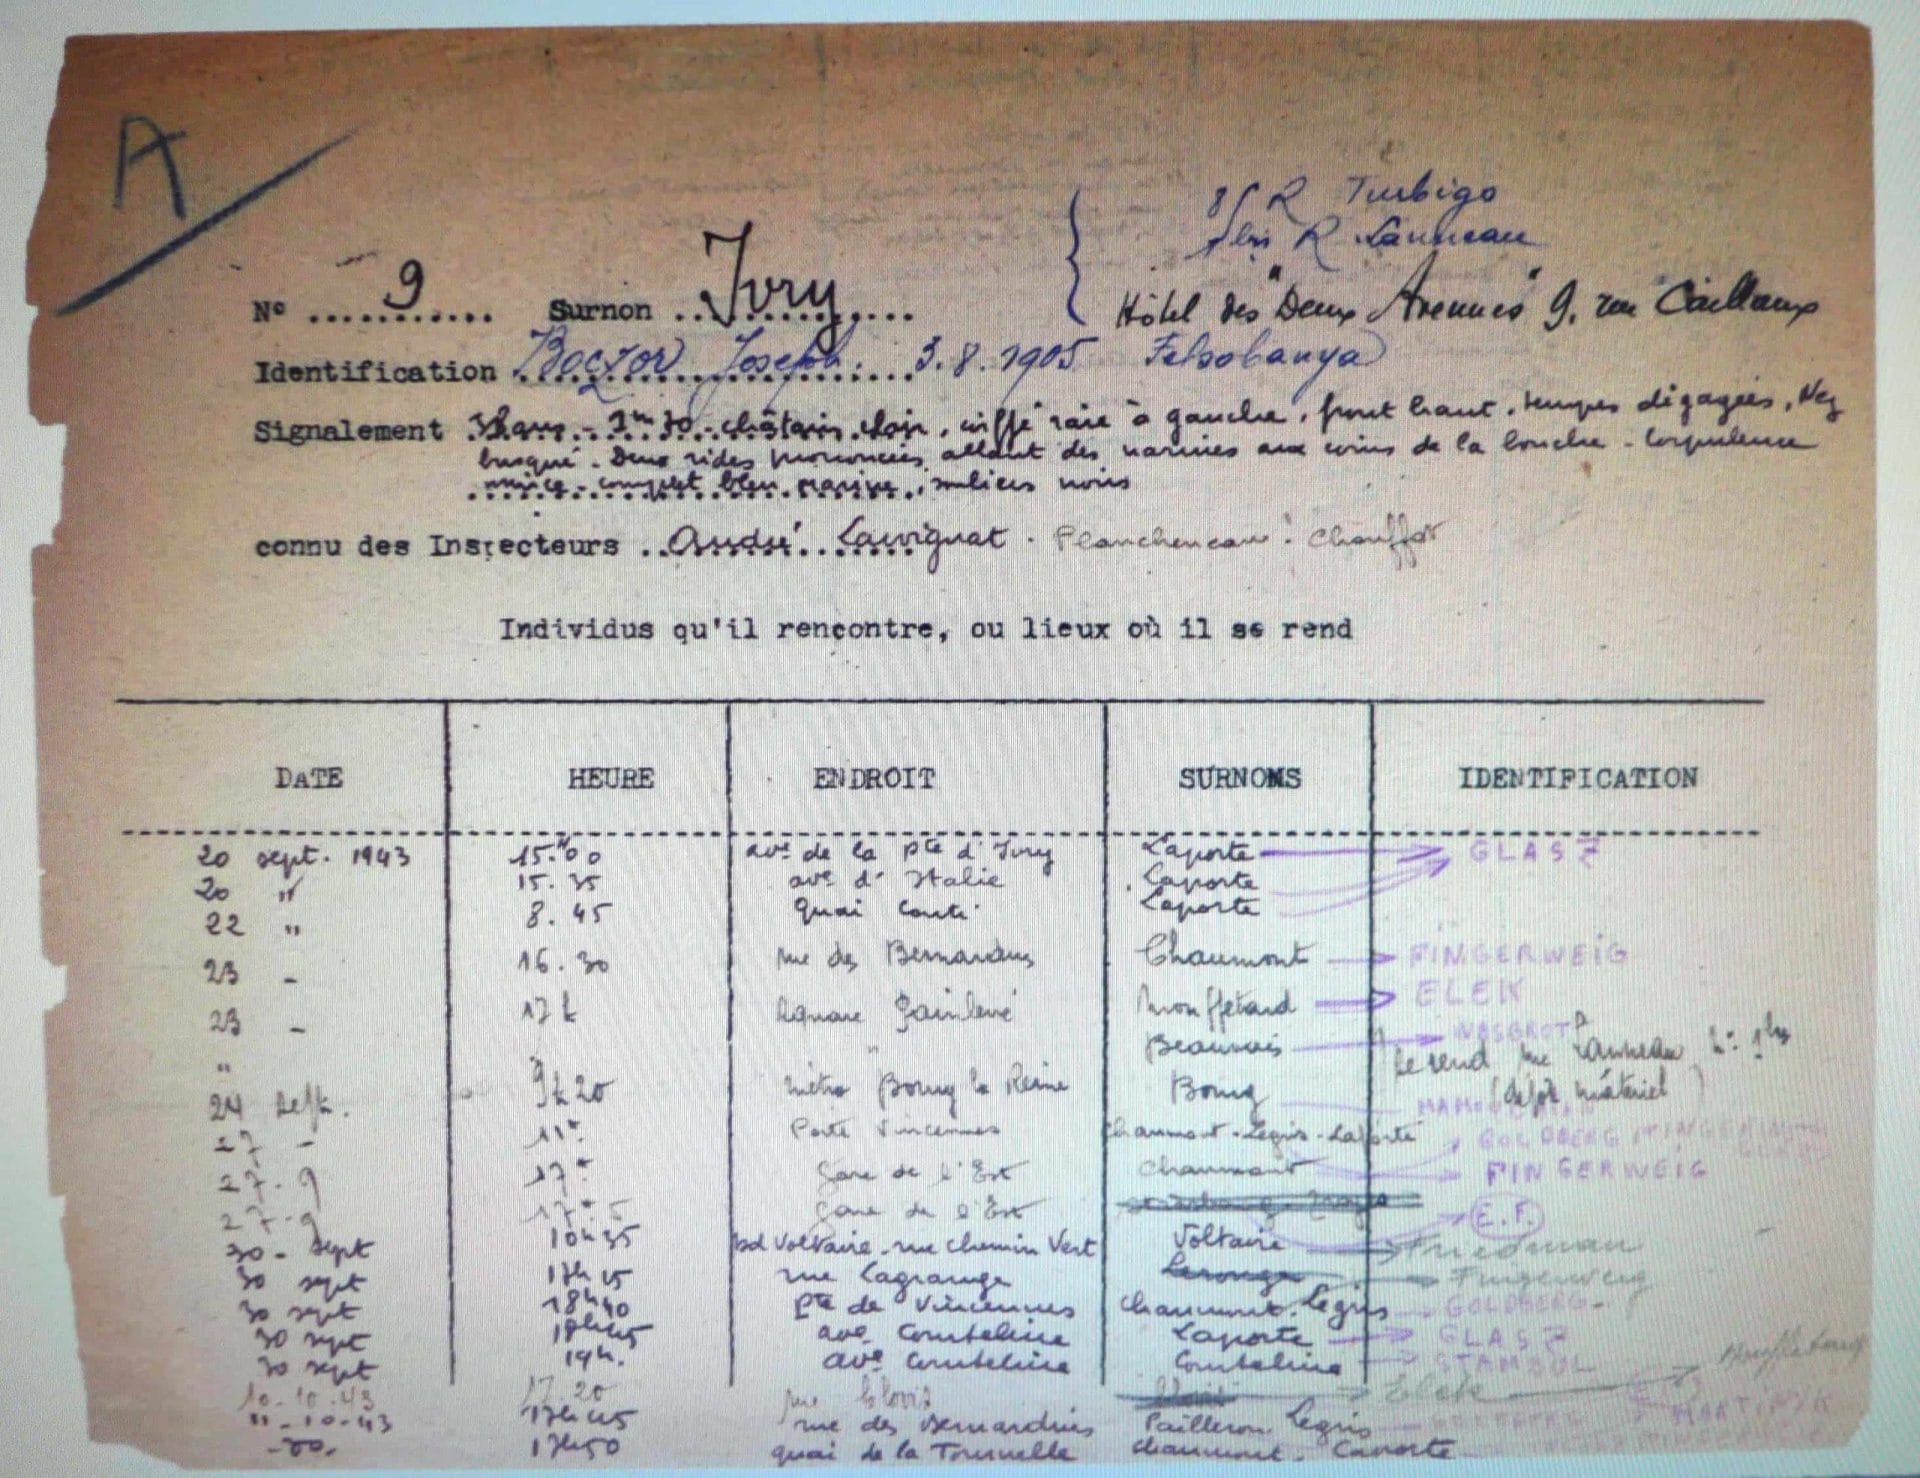 A
R Turbigo
bis R Lanneau
Hôtel des "Deux Avenues" 9, rue Caillaux
N° 9 Surnon Ivry
Identification Boczor Joseph. 3.8.1905 Felsobanya
Signalement 38 ans - 1m70 - châtain clair, coiffé raie à gauche, front haut, tempes dégagées, Nez
busqué - Deux rides prononcées allant des narines aux coins de la bouche - Corpulence
mince - complet bleu marine, souliers noirs
connu des Inspecteurs André Lavignat . Plancheneau . Chauffot
Individus qu'il rencontre, ou lieux où il se rend
DATE HEURE ENDROIT SURNOMS IDENTIFICATION
20 sept. 1943 15.00 ave de la Pte d'Ivry Laporte GLASZ
20 " 15.35 ave d'Italie Laporte
22 " 8.45 Quai Conti Laporte
23 - 16.30 rue des Bernardins Chaumont FINGERWEIG
23 - 17h Square Painlevé Mouffetard ELEK
" Beauvais Se rend rue Lanneau n° 1bis
24 Sept. 9h20 métro Bourg la Reine Bourg (dépôt matériel)
27 - 11h Porte Vincennes Chaumont - Legris - Laporte GOLDBERG
27.9 17h Gare de l'Est Chaumont FINGERWEIG
27.9 Gare de l'Est E.F.
30 - sept 10h35 bd Voltaire - rue Chemin Vert Voltaire Friedman
30 sept 17h15 rue Lagrange Fingerweig
30 sept 18h40 Pte de Vincennes Chaumont. Legris GOLDBERG
30 sept 18h45 ave Courteline Laporte GLASZ
30 sept 19h. ave Courteline Courteline STAMBUL
10.10.43 17.20 rue Clovis Elek
" - 10-43 17h45 rue des Bernardins Pailleron. Legris
17h50 quai de la Tournelle Chaumont. Laporte